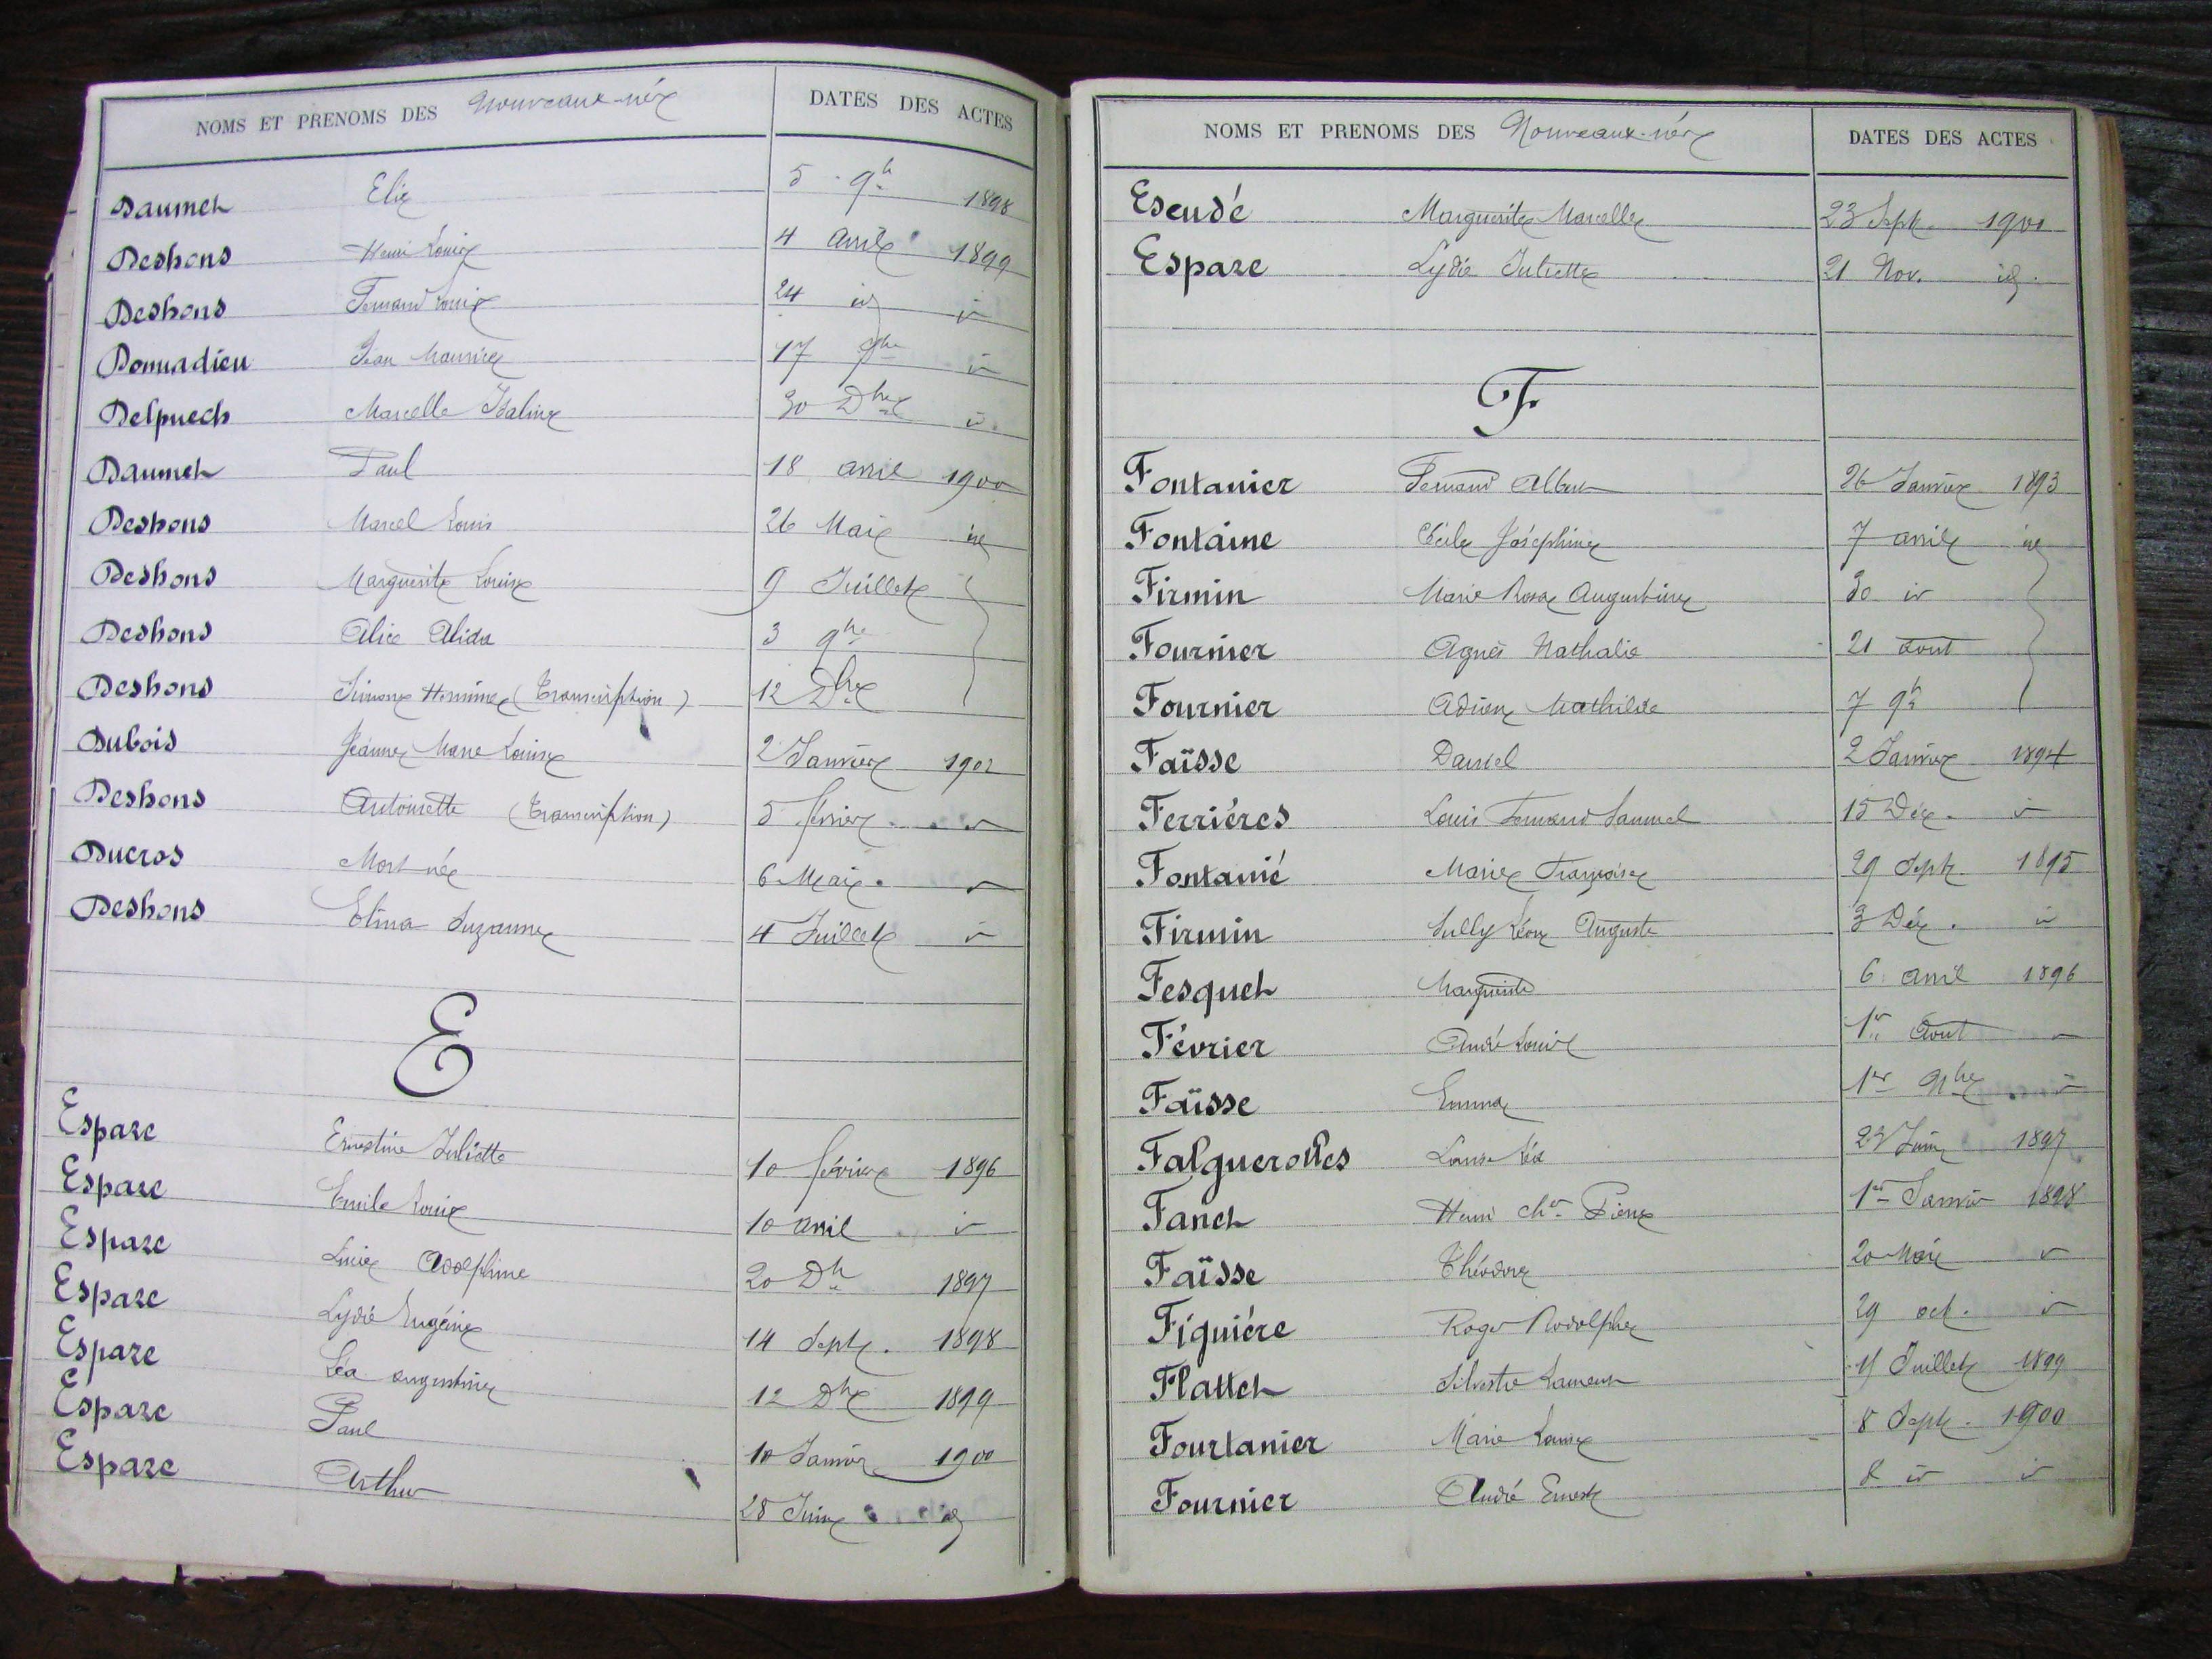 NOMS ET PRENOMS DES Nouveaux-nés DATES DES ACTES
Daumet Elie 5 9b 1898
Deshons Henri Louis 4 avril 1899
Deshons Fernand Louis 24 id id
Donnadieu Jean Maurice 17 id
Delpuech Marcelle Isaline 30 Dbre id
Daumet Paul 18 avril 1900
Deshons Marcel Louis 26 Mai id
Deshons Marguerite Louise 9 Juillet
Deshons Alice Alida 3 9bre
Deshons Simone Hermine (Transcription) 12 Dbre
Dubois Jeanne Marie Louise 2 Janvier 1901
Deshons Antoinette (Transcription) 5 février id
Ducros Mort-né 6 Mai id
Deshons Elina Suzanne 4 Juillet id
E
Espaze Ernestine Juliette 10 février 1896
Espaze Emile Louis 10 avril id
Espaze Lucie Adolphine 20 Db 1897
Espaze Lydie Eugénie 14 Sept. 1898
Espaze Léa augustine 12 Dbre 1899
Espaze Paul 10 Janvier 1900
Espaze Arthur 28 Juin id
NOMS ET PRENOMS DES Nouveaux-nés DATES DES ACTES
Escudé Marguerite Marcelle 23 Sept. 1900
Espaze Lydie Juliette 21 Nov. id.
F
Fontanier Fernand Albert 26 Janvier 1893
Fontaine Cécile Joséphine 7 avril id
Firmin Marie Rosa Augustine 30 id
Fournier Agnès Nathalie 21 aout
Fournier Adrien Mathilde 7 9b
Faïsse Daniel 2 Janvier 1894
Ferriéres Louis Fernand Samuel 15 Déc. id
Fontanié Marie Françoise 29 Sept. 1895
Firmin Sully Léon Auguste 3 Déc. id
Fesquet Marguerite 6 avril 1896
Février André Louis 1er Aout id
Faïsse Emma 1er 9bre id
Falguerolles Louise Léa Juin 1897
Fanet Henri Chs Pierre 1er Janvier 1898
Faïsse Théodore 20 Mai id
Figuiére Roger Rodolphe 29 oct. id
Flattet Silvestre Laurent Juillet 1899
Fourtanier Marie Louise 8 Sept. 1900
Fournier André Ernest 8 id id